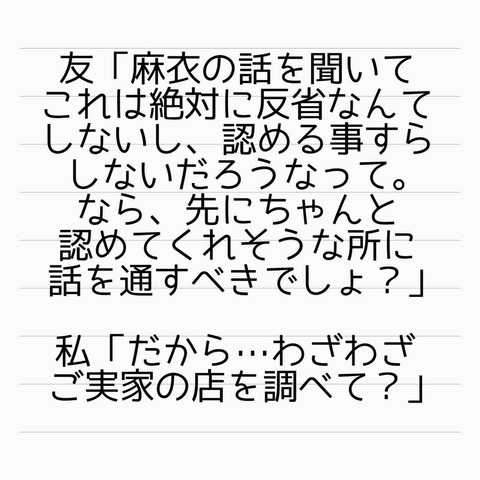 友「麻衣の話を聞いて
これは絶対に反省なんて
しないし、認める事すら
しないだろうなって。
なら、先にちゃんと
認めてくれそうな所に
話を通すべきでしょ？」
私「だから…わざわざ
ご実家の店を調べて？」